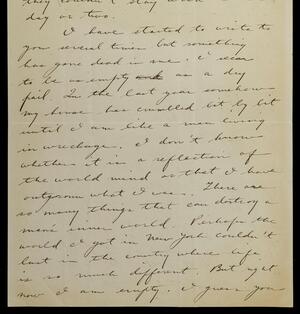 they couldn't stay
day or two.
I have started to write to
you several times but something
has gone dead in me. I seem
to be as empty as a dry
pail. In the last year somehow
my house has crumbled bit by bit
until I am like a man living
in wreckage. I don't know
whether it is a reflection of
the world mind or that I have
outgrown what I was. There are
so many things that can destroy a
man's inner world. Perhaps the
world I got in New York couldn't
last in the country where life
is so much different. But right
now I am empty. I guess you